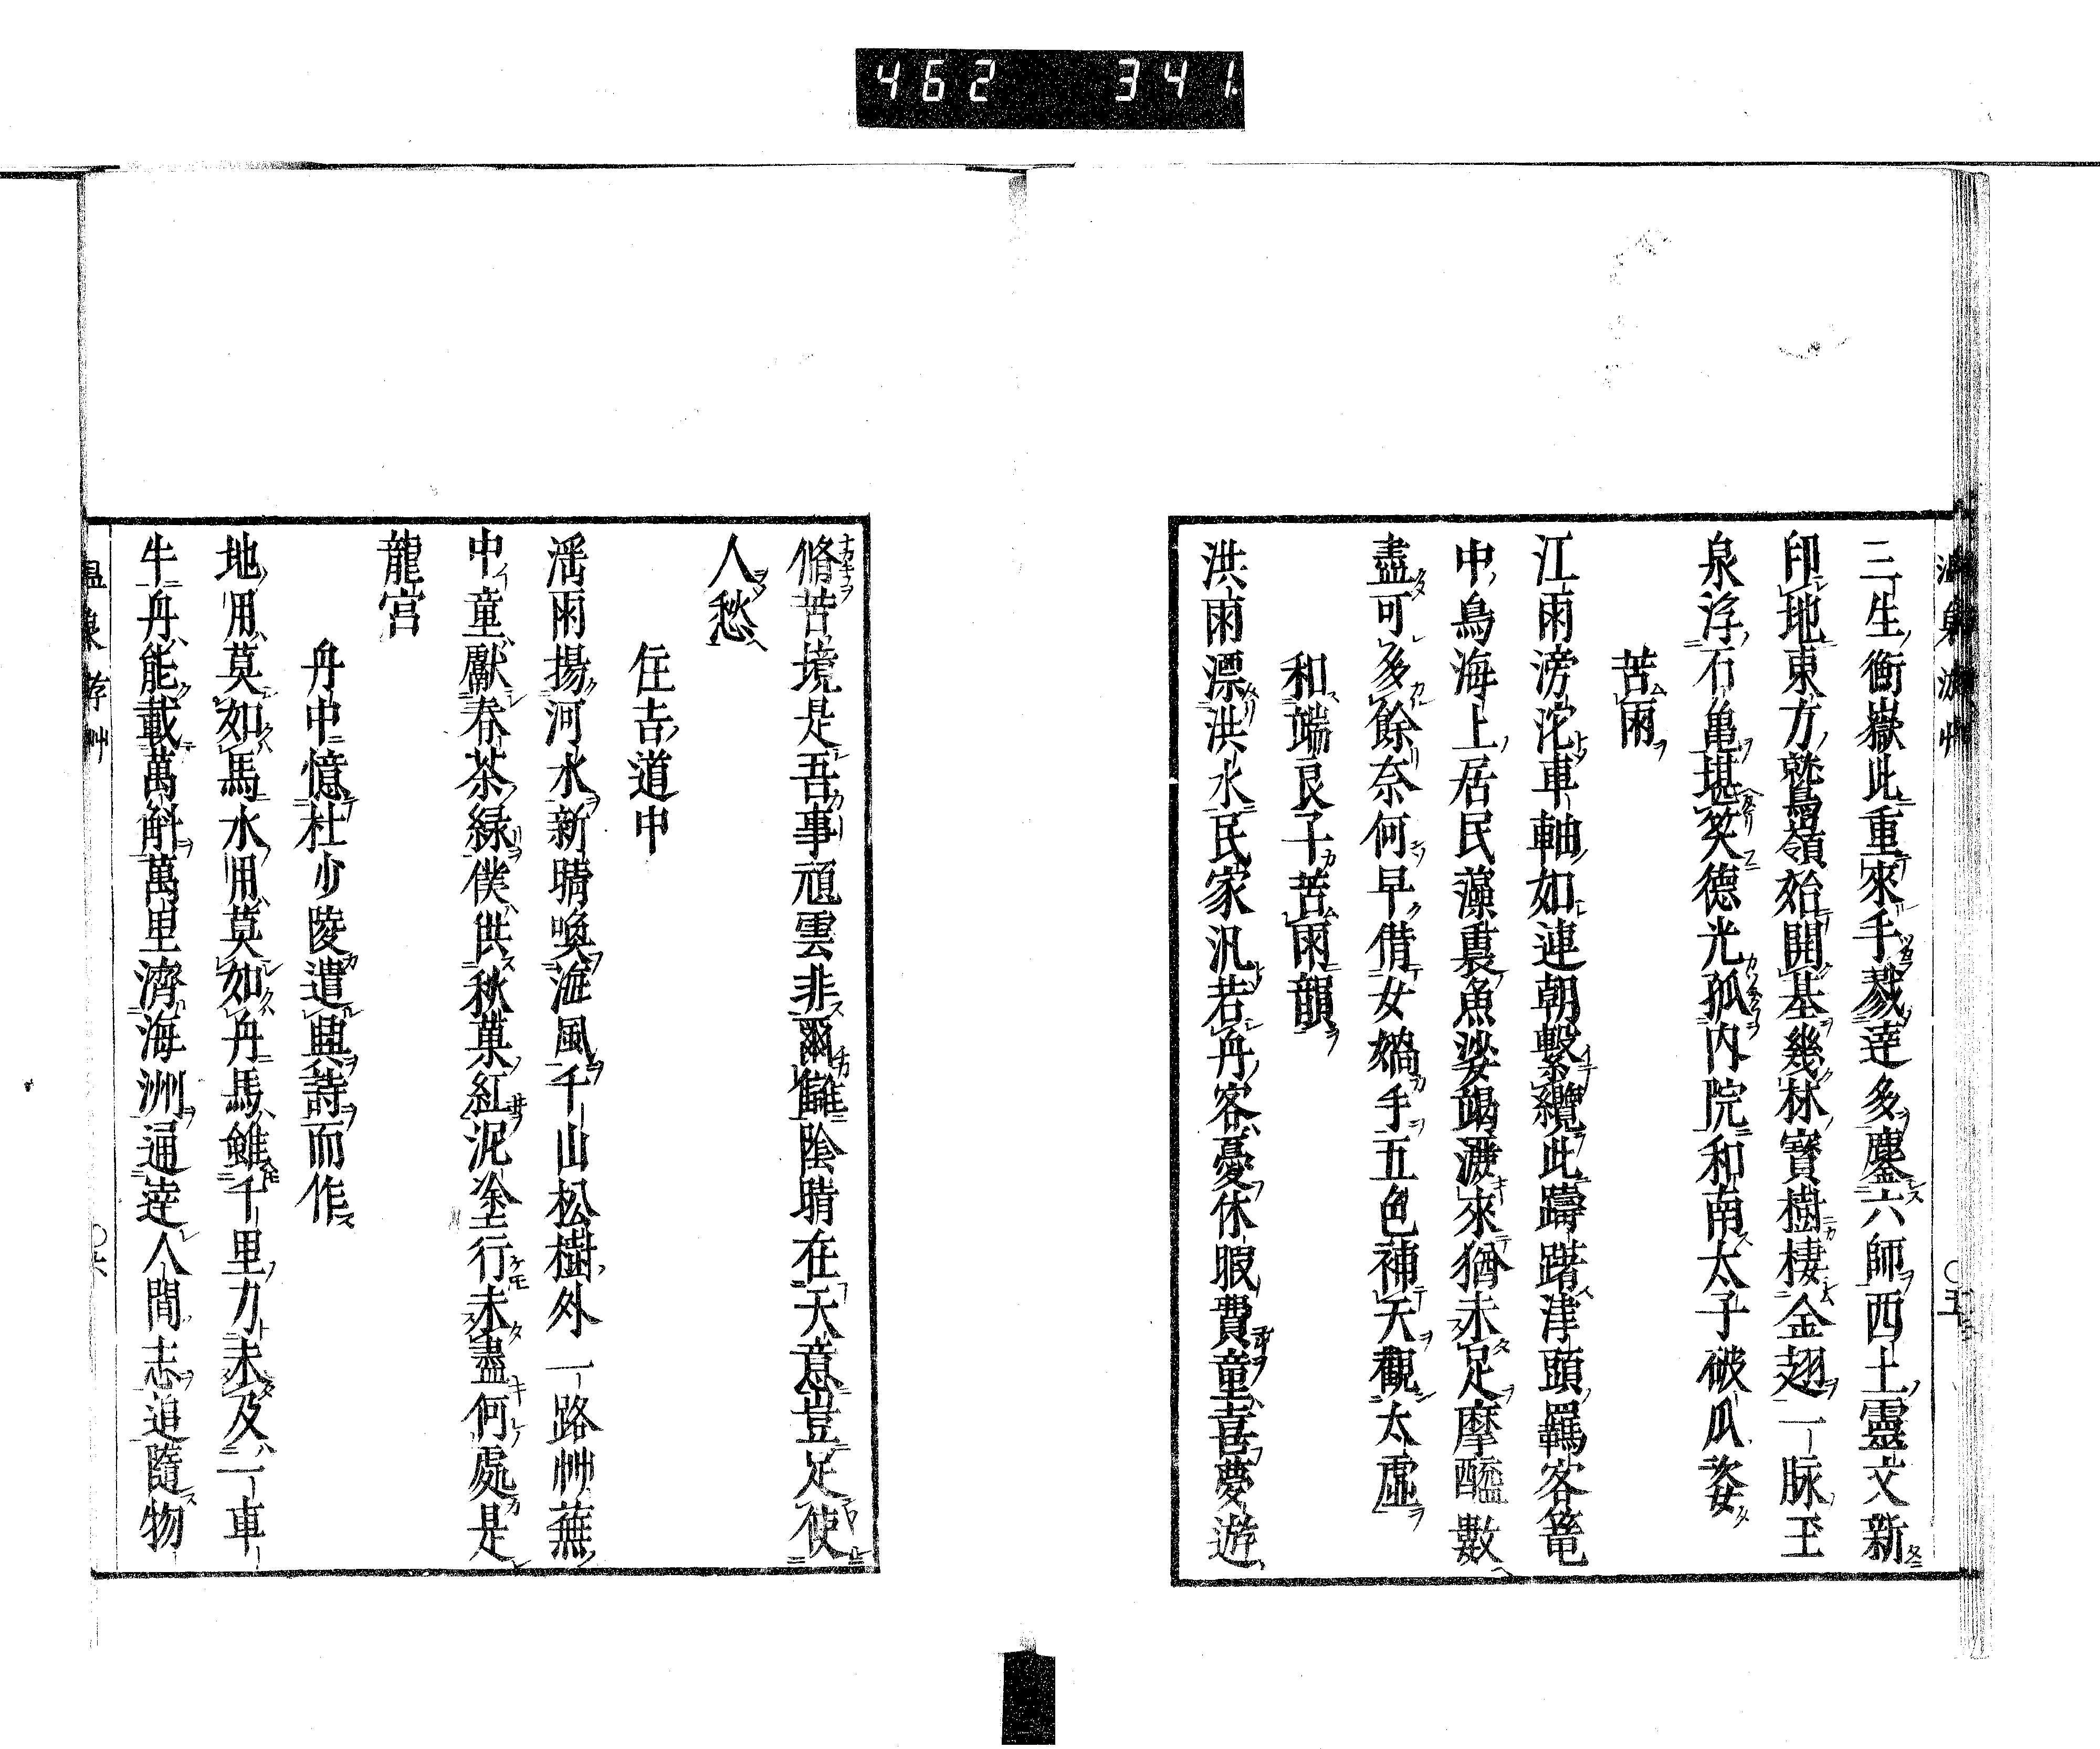 462 341
三生衡嶽此重來手戮達多鏖六師西土靈文新
印地東方鷲嶺始開基幾林寶樹棲金翅一脉玉
泉浮石亀堪笑德光孤內院和南太子破瓜姿
苦雨
江雨滂沱車軸如連朝繫纜此躊躇津頭羈客篭
中鳥海上居民藻裏魚娑竭潑來猶未足摩醯數
盡可多餘奈何早借女媧手五色補天觀太虛
和端良子苦雨韻
洪雨漂洪水民家汎若舟客憂休暇費童喜夢遊
脩苦境是吾事頑雲非爾讎陰晴在天意豈足使
人愁
住吉道中
滛雨揚河水新晴喚海風千山松樹外一路艸蕪
中童獻春茶綠僕供秋菓紅泥塗行未盡何處是
龍宮
舟中憶杜少陵遣興詩而作
地用莫如馬水用莫如舟馬雖千里力未及一車
牛舟能載萬斛萬里濟海洲通達人間志追隨物
温泉游艸
〇五
〇六